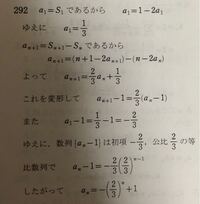 292 a₁=S₁ であるから a₁=1-2a₁
ゆえに a₁=1/3
aₙ₊₁=Sₙ₊₁-Sₙ であるから
aₙ₊₁=(n+1-2aₙ₊₁)-(n-2aₙ)
よって aₙ₊₁=2/3aₙ+1/3
これを変形して aₙ₊₁-1=2/3(aₙ-1)
また a₁-1=1/3-1=-2/3
ゆえに,数列{aₙ-1}は初項 -2/3,公比 2/3 の等
比数列で aₙ-1=-2/3(2/3)ⁿ⁻¹
したがって aₙ=-(2/3)ⁿ+1